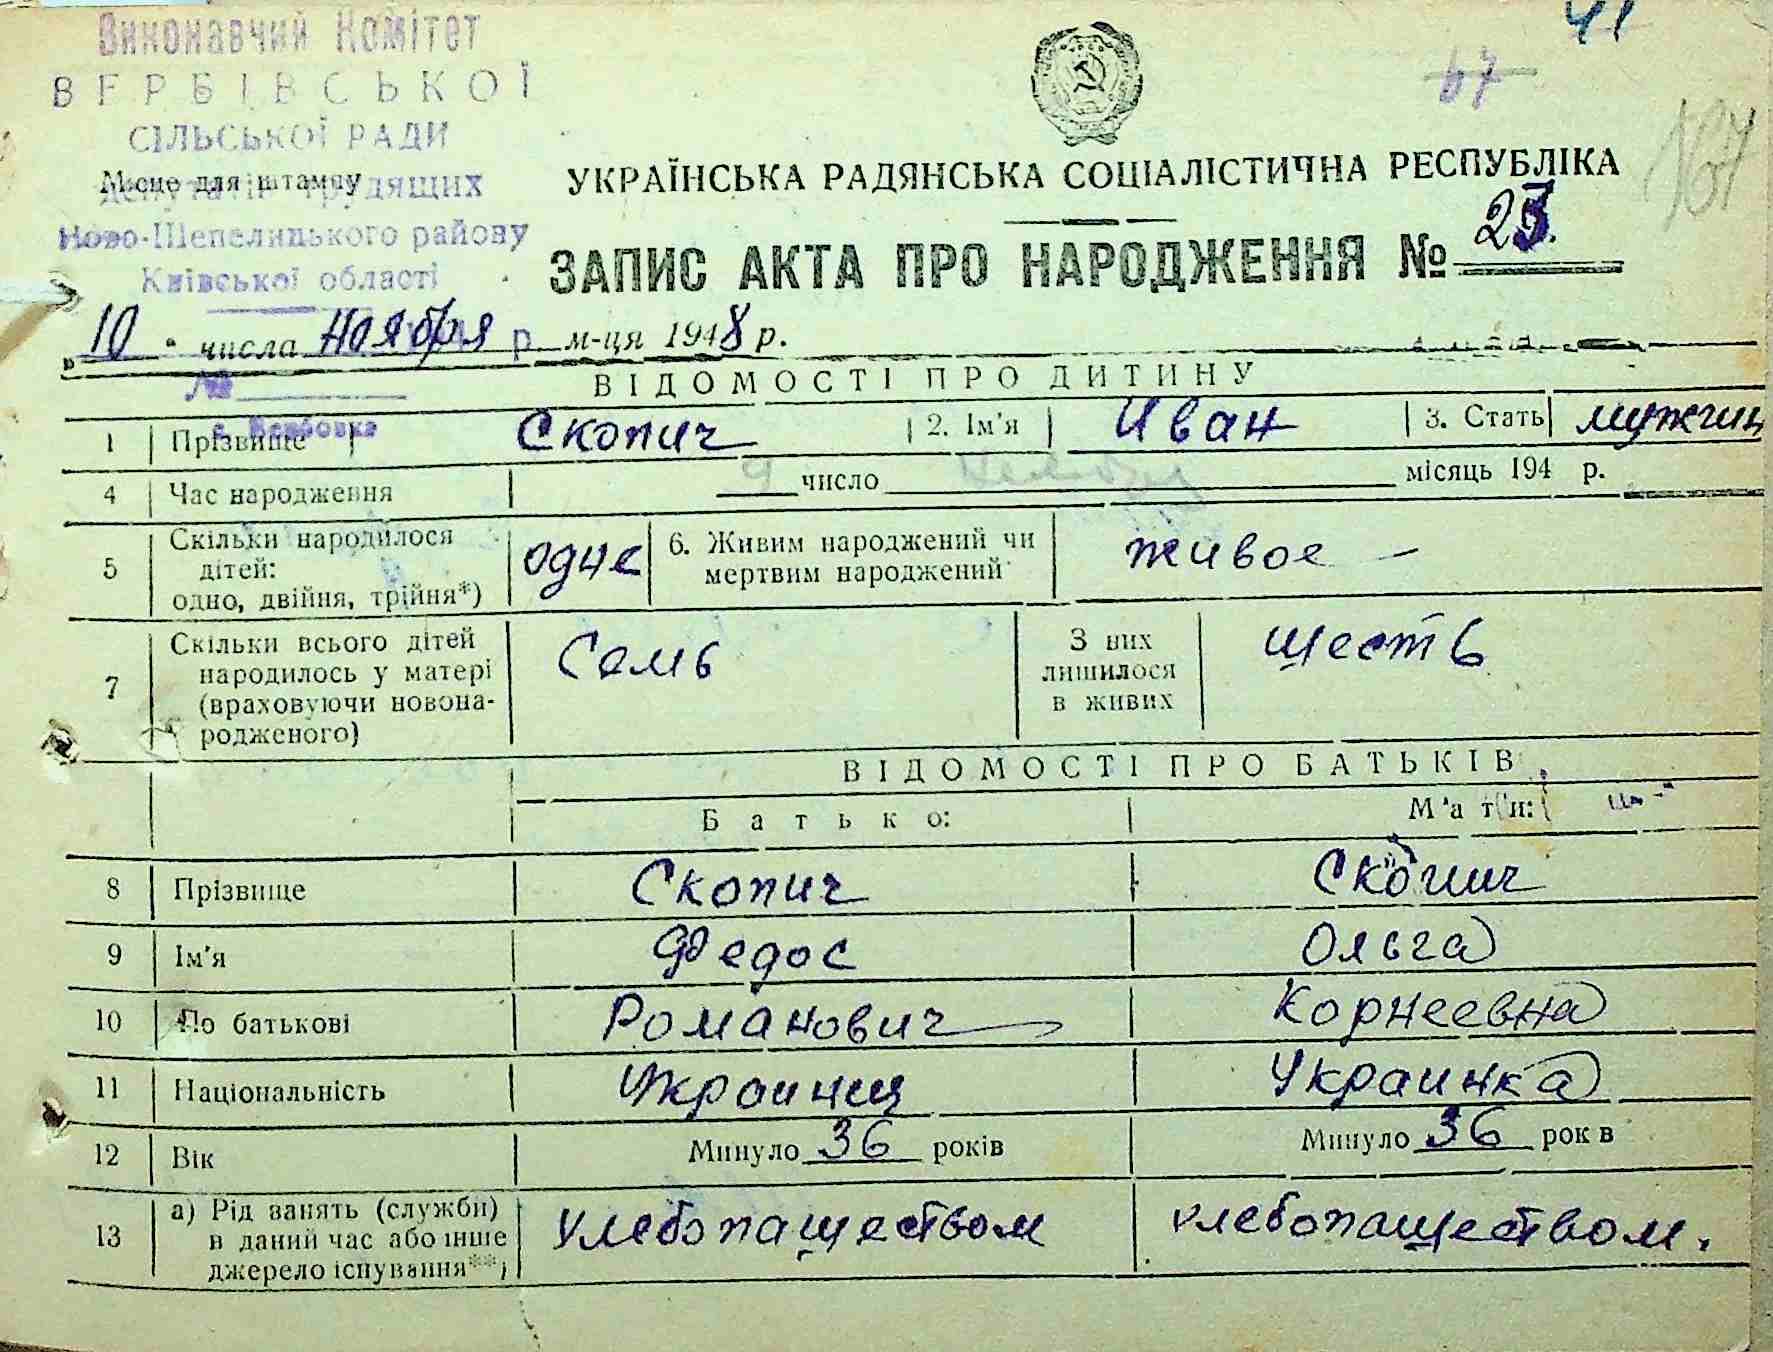 Виконавчий Комітет
ВЕРБІВСЬКОЇ
СІЛЬСЬКОЇ РАДИ
Місце для штампу
депутатів трудящих
Ново-Шепелицького району
Київської області
41
67
167
УКРАЇНСЬКА РАДЯНСЬКА СОЦІАЛІСТИЧНА РЕСПУБЛІКА
ЗАПИС АКТА ПРО НАРОДЖЕННЯ №
„10“ числа ноября р. м-ця 1948 р.
№
с. Вербовка
ВІДОМОСТІ ПРО ДИТИНУ
1 Прізвище Скопич 2. Ім'я Иван 3. Стать мужчин
4 Час народження 9 число ноября місяць 194 р.
5 Скільки народилося дітей: одно, двійня, трійня*) одне 6. Живим народжений чи мертвим народжений живое –
7 Скільки всього дітей народилось у матері (враховуючи новонародженого) Семь З них лишилося в живих шесть
ВІДОМОСТІ ПРО БАТЬКІВ
Батько: М'ати:
8 Прізвище Скопич Скопич
9 Ім'я Федос Ольга
10 По батькові Романович Корнеевна
11 Національність Украинец Украинка
12 Вік Минуло 36 років Минуло 36 рок в
13 а) Рід занять (служби) в даний час або інше джерело існування**) хлебопашеством хлебопашеством.